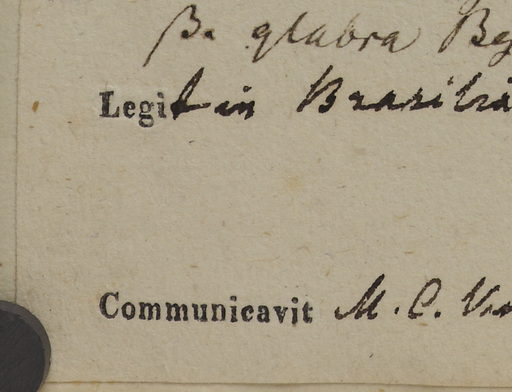 β. glabra Bg
Legit in Brasilia
Communicavit M. C.